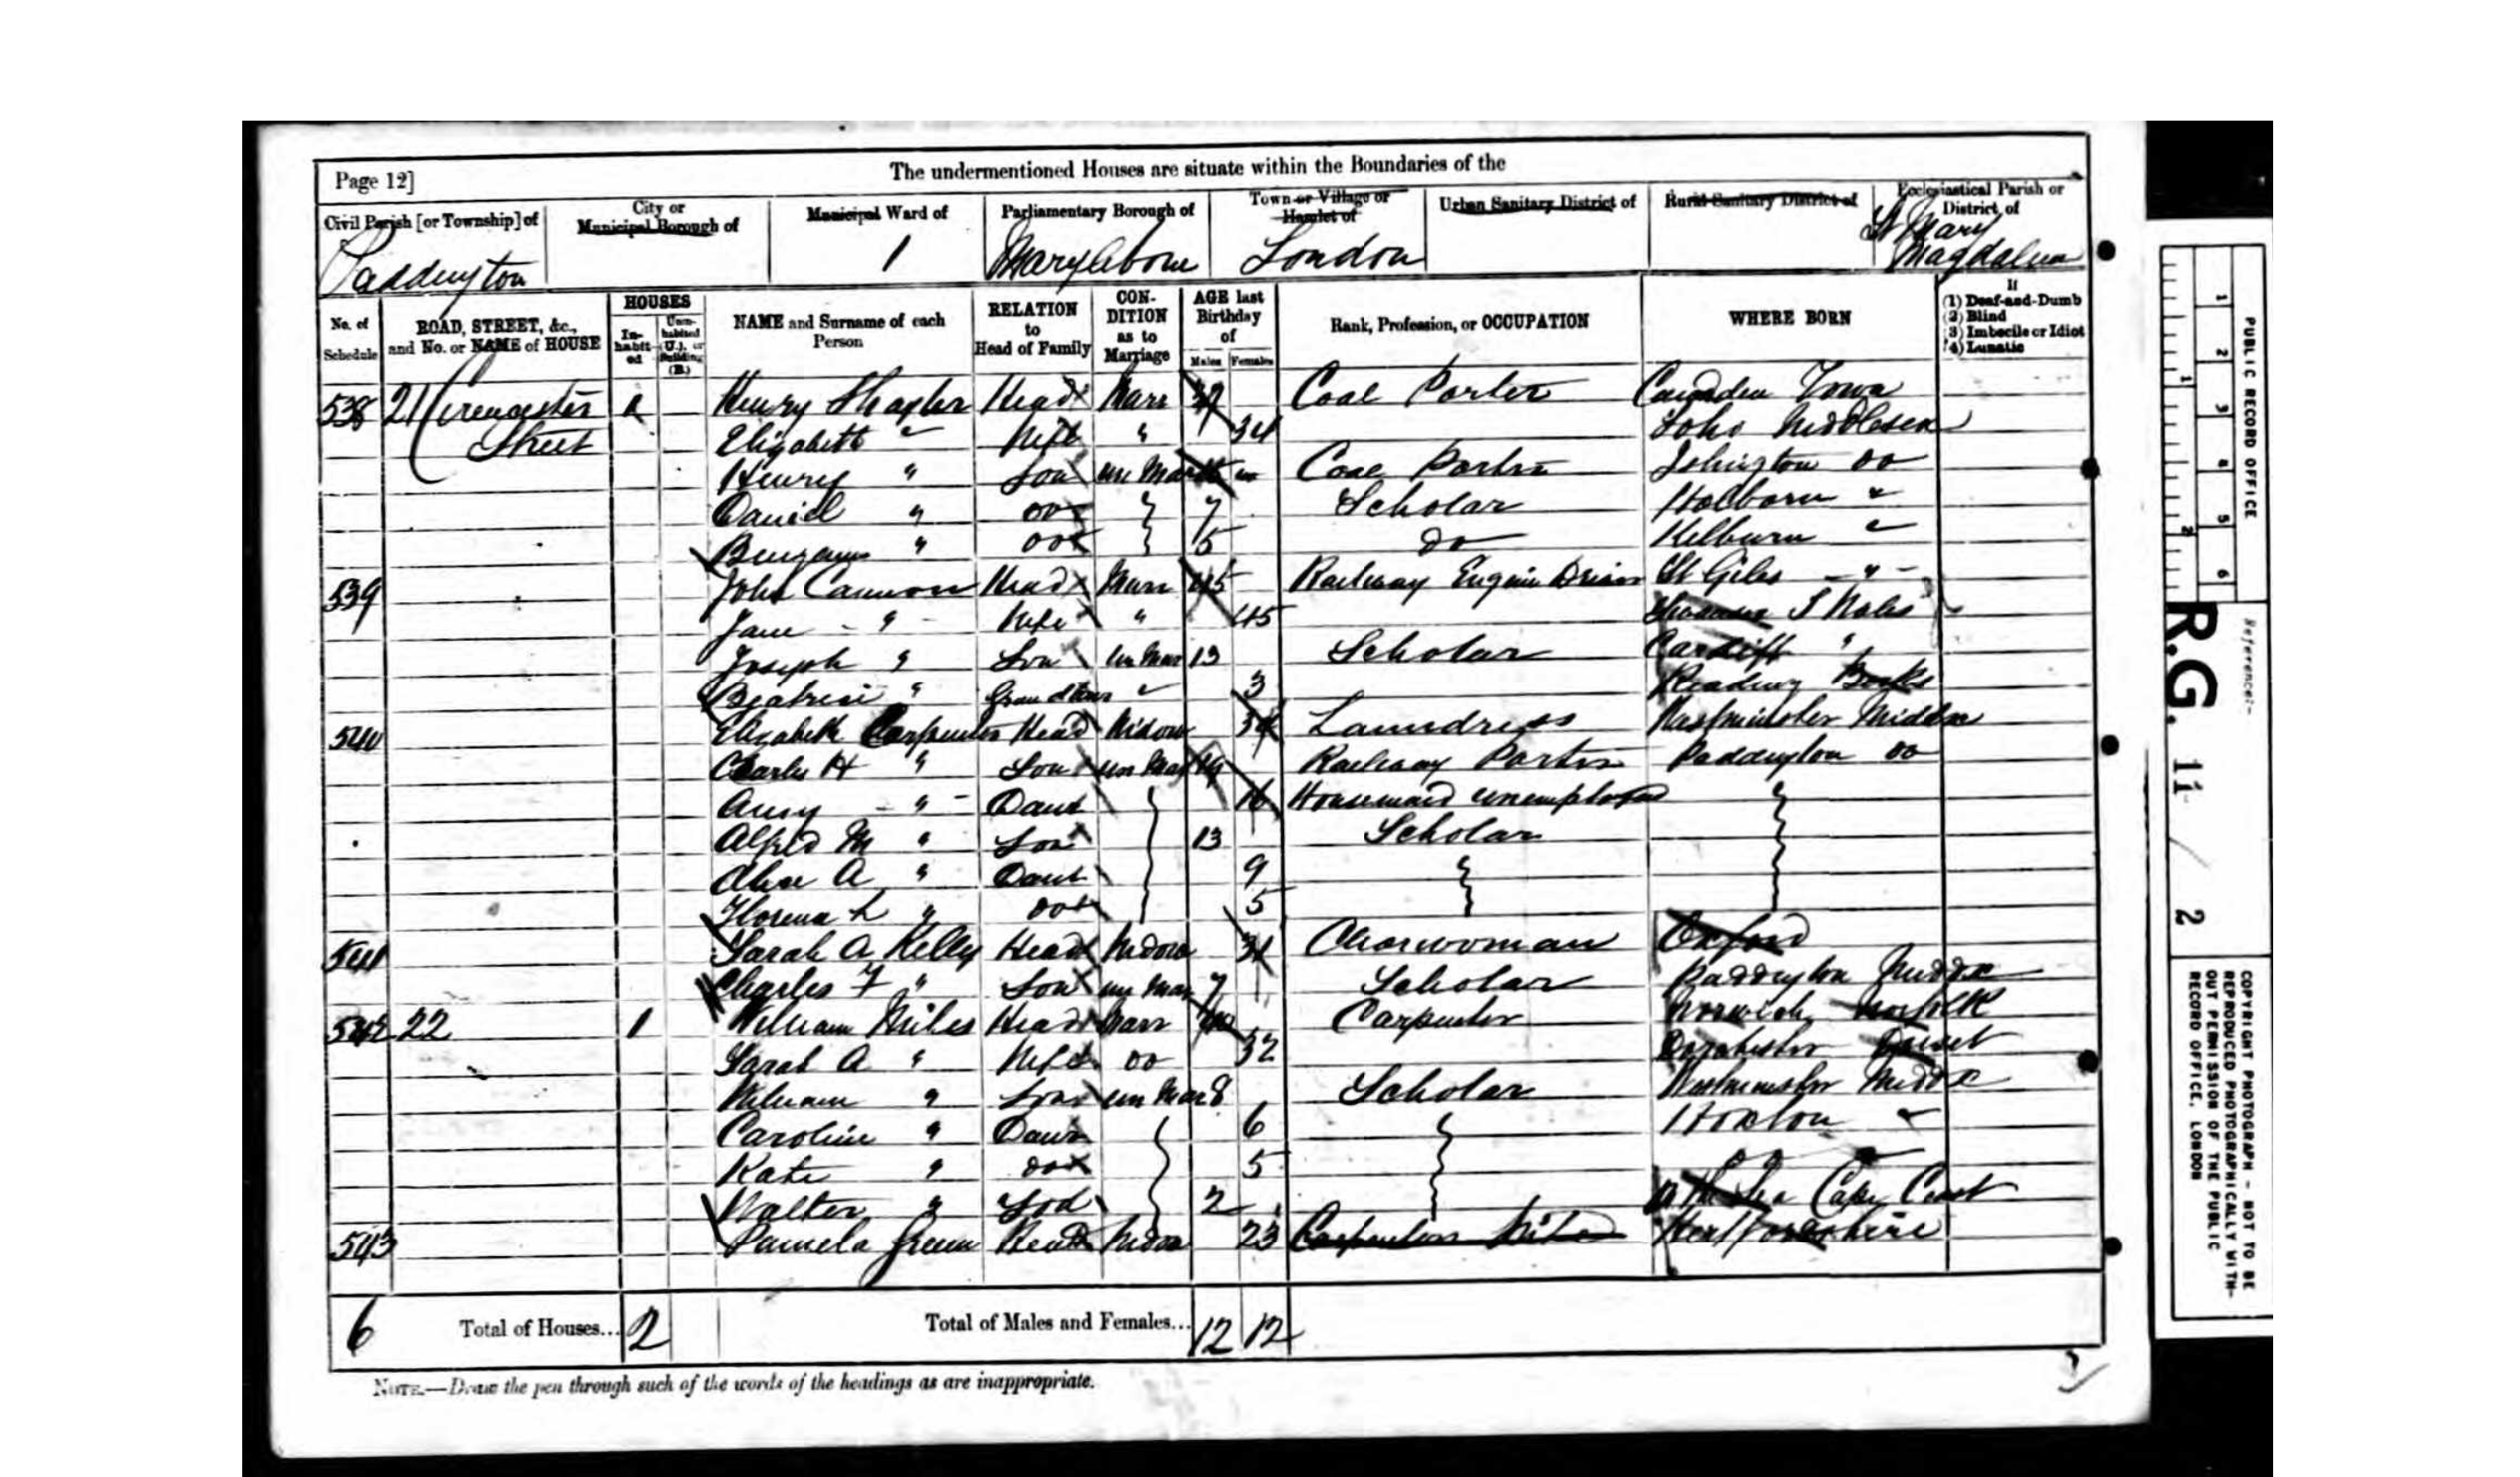 The undermentioned Houses are situate within the Boundaries of the
Page 12]
Civil Parish [or Township] of
City or Municipal Borough of
Municipal Ward of
Parliamentary Borough of
Town or Village or Hamlet of
Urban Sanitary District of
Rural Sanitary District of
Ecclesiastical Parish or District of
Paddington
1
Marylebone
London
St Mary Magdalen
No. of Schedule
ROAD, STREET, &c., and No. or NAME of HOUSE
HOUSES
In-habit-ed
Unin-habited (U.), or Building (B.)
NAME and Surname of each Person
RELATION to Head of Family
CON-DITION as to Marriage
AGE last Birthday of
Males Females
Rank, Profession, or OCCUPATION
WHERE BORN
If
(1) Deaf-and-Dumb
(2) Blind
(3) Imbecile or Idiot
(4) Lunatic
538 21 Cirencester Street Henry Head Marr Coal Porter Camden Town
Elizabeth " Wife " 34 Soho Middlesex
Henry " Son un Mar Coal Porter Islington do
Daniel " do 7 Scholar Holborn "
Benjamin " do 5 do Kilburn "
539 John Cannon Head Marr 45 Railway Engine Driver St Giles "
Jane " Wife " 45 S Wales
Joseph " Son un Mar 13 Scholar Cardiff "
Beatrice " " 3 Reading Berks
540 Elizabeth Carpenter Head Widow Laundress Westminster Middx
Charles H " Son un Mar 19 Railway Porter Paddington do
Amy " Daur 16 Housemaid unemployed
Alfred M " Son 13 Scholar
Alice A " Daur 9
Florence L " do 5
541 Sarah A Kelly Head Widow Charwoman Oxford
Charles F " Son un Mar 7 Scholar Paddington Middx
542 22 1 William Miles Head Marr 40 Carpenter Norwich Norfolk
Sarah A " Wife do 32 Dorchester Dorset
William " Son un Mar 8 Scholar Westminster Middx
Caroline " Daur 6 Hoxton "
Kate " do 5
Walter " Son 2 Cape Coast
543 Pamela Green Head Widow 23 Carpenters Wife Hertfordshire
6 Total of Houses... 2 Total of Males and Females... 12 12
NOTE.—Draw the pen through such of the words of the headings as are inappropriate.
PUBLIC RECORD OFFICE
1 2 3 4 5 6
1 2
Reference:-
R.G. 11 / 2
COPYRIGHT PHOTOGRAPH - NOT TO BE
REPRODUCED PHOTOGRAPHICALLY WITH-
OUT PERMISSION OF THE PUBLIC
RECORD OFFICE, LONDON